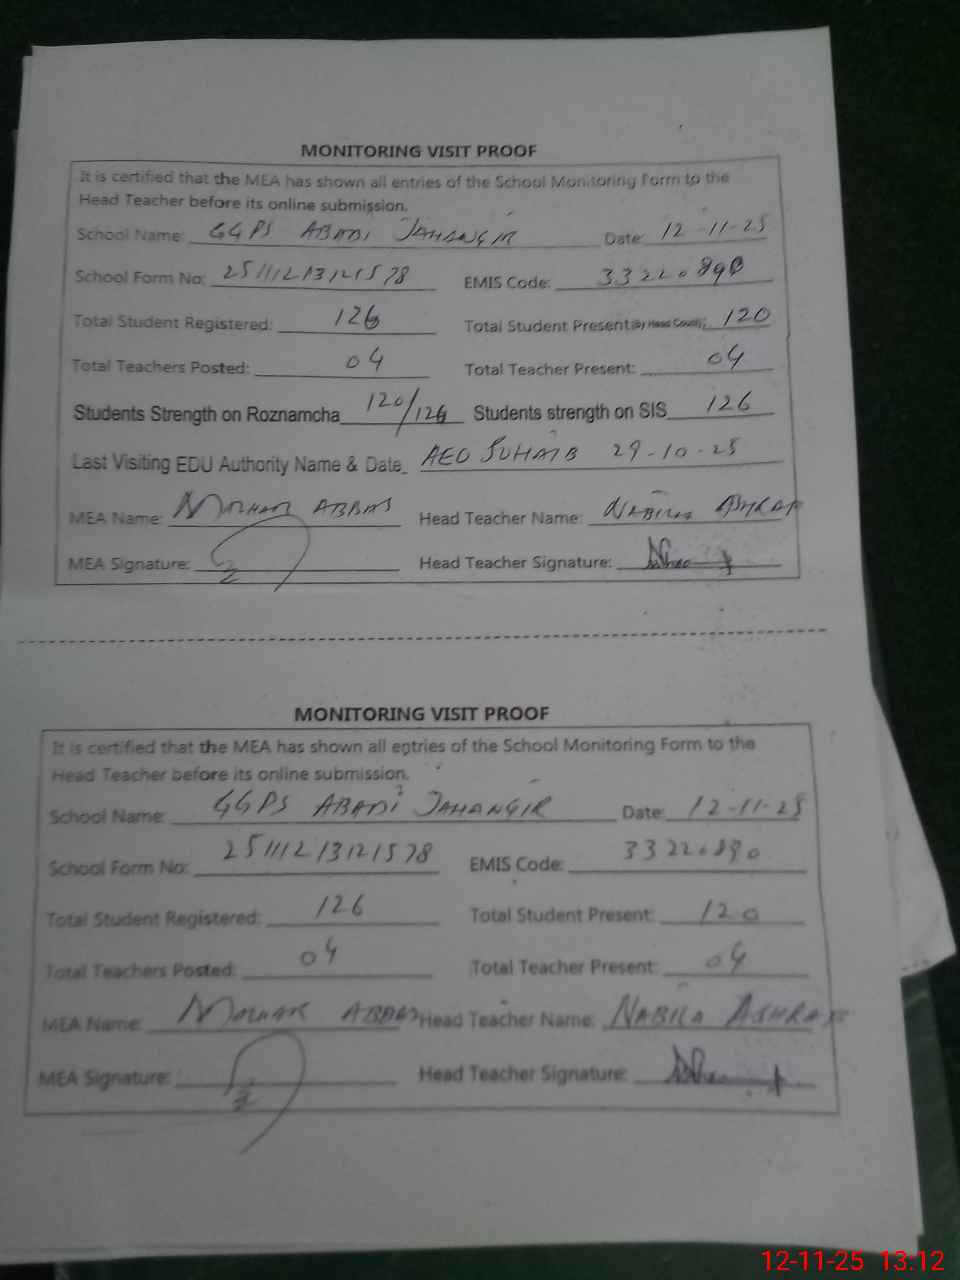 MONITORING VISIT PROOF
It is certified that the MEA has shown all entries of the School Monitoring Form to the
Head Teacher before its online submission.
School Name: GGPS ABADI JAHANGIR Date: 12-11-25
School Form No: 25111213121578 EMIS Code: 33220890
Total Student Registered: 126 Total Student Present (by Head Count): 120
Total Teachers Posted: 04 Total Teacher Present: 04
Students Strength on Roznamcha 120/126 Students strength on SIS 126
Last Visiting EDU Authority Name & Date AEO SUHAIB 29-10-25
MEA Name: ABBAS Head Teacher Name: NABILA ASHRAF
MEA Signature: Head Teacher Signature:
MONITORING VISIT PROOF
It is certified that the MEA has shown all entries of the School Monitoring Form to the
Head Teacher before its online submission.
School Name: GGPS ABADI JAHANGIR Date: 12-11-25
School Form No: 25111213121578 EMIS Code: 33220890
Total Student Registered: 126 Total Student Present: 120
Total Teachers Posted: 04 Total Teacher Present: 04
MEA Name: ABBAS Head Teacher Name: NABILA ASHRAF
MEA Signature: Head Teacher Signature:
12-11-25 13:12